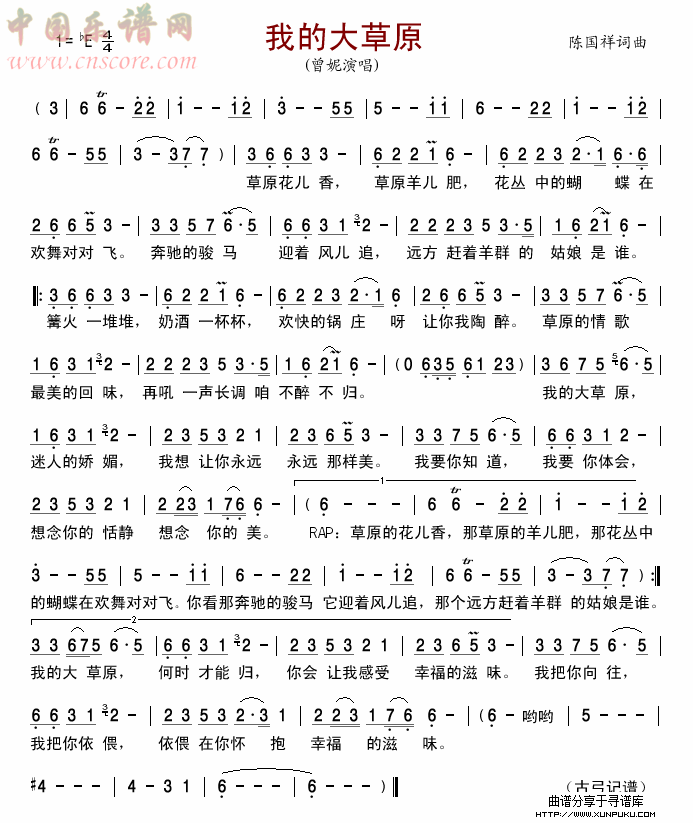 中国乐谱网
www.cnscore.com
1=♭E 4/4
我的大草原
(曾妮演唱)
陈国祥词曲
( 3 | 6 6 - 22 | 1 - - 12 | 3 - - 55 | 5 - - 11 | 6 - - 22 | 1 - - 12 |
6 6 - 55 | 3 - 37 7 ) | 3 6 6 3 3 - | 6 2 2 1 6 - | 6 2 2 3 2·1 6·6 |
草原花儿 香， 草原羊儿 肥， 花丛 中的蝴 蝶在
2 6 6 5 3 - | 3 3 5 7 6·5 | 6 6 3 1 3 2- | 2 2 2 3 5 3·5 | 1 6 2 1 - |
欢舞对对 飞。 奔驰的骏 马 迎着 风儿 追， 远方 赶着羊群 的 姑娘 是谁。
‖: 3 6 6 3 3 - | 6 2 2 1 6 - | 6 2 2 3 2·1 6 | 2 6 6 5 3 - | 3 3 5 7 6·5 |
篝火 一堆堆， 奶酒 一杯杯， 欢快的锅 庄 呀 让你我陶 醉。 草原的情 歌
1 6 3 1 3 2- | 2 2 2 3 5 3·5 | 1 6 2 1 - | (0 635 61 23) | 3 6 7 5 5 6·5 |
最美的回 味， 再吼 一声长调 咱 不醉 不 归。 我的大 草 原，
1 6 3 1 3 2 - | 2 3 5 3 2 1 | 2 3 6 5 3 - | 3 3 7 5 6·5 | 6 6 3 1 2 - |
迷人的娇 媚， 我想 让你永远 永远 那样美。 我要你知 道， 我要 你体会，
2 3 5 3 2 1 | 2 23 1 76 6 - | 1 ( 6 - - - | 6 6 - 22 | 1 - - 12 |
想念你的 恬静 想念 你的 美。 RAP：草原的花儿香，那草原的羊儿肥，那花丛中
3 - - 55 | 5 - - 11 | 6 - - 22 | 1 - - 12 | 6 6 - 55 | 3 - 37 7 ) :‖
的蝴蝶在欢舞对对飞。你看那奔驰的骏马 它迎着风儿追，那个远方赶着羊群 的姑娘是谁。
2
3 3 675 6·5 | 6 6 3 1 3 2 - | 2 3 5 3 2 1 | 2 3 6 5 3 - | 3 3 7 5 6·5 |
我的大 草原， 何时 才能 归， 你会 让我感受 幸福的滋 味。 我把你向 往，
6 6 3 1 3 2 - | 2 3 5 3 2·3 1 | 2 23 1 76 6 - | (6 - 哟哟 | 5 - - - |
我把你依 偎， 依偎 在你怀 抱 幸福 的滋 味。
#4 - - - | 2 - - - | 4 - 3 1 | 6 - - - | 6 - - - ) ‖
(古弓记谱)
曲谱分享于寻谱库
HTTP://WWW.XUNPUKU.COM